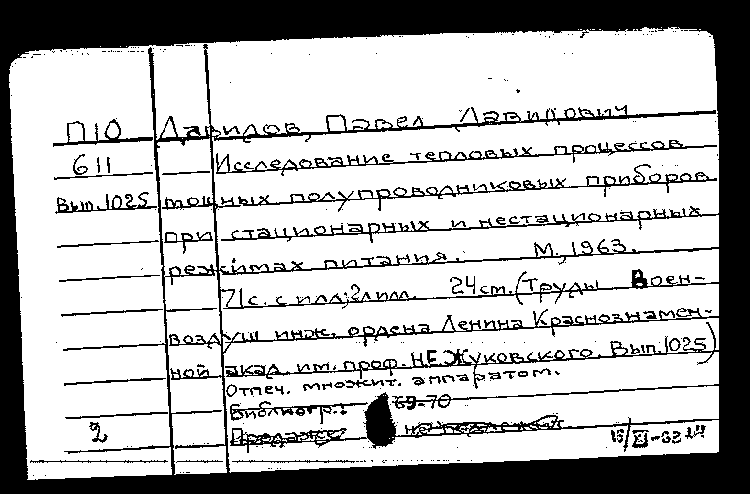 П10 Давидов, Павел Давидович
611 Исследование тепловых процессов
Вып.1025 мощных полупроводниковых приборов
при стационарных и нестационарных
режимах питания. М., 1963.
71с. с илл; 2л илл. 24см. (Труды Воен-
воздуш инж. ордена Ленина Краснознамен-
ной акад. им. проф. Н.Е. Жуковского. Вып.1025)
Отпеч. множит. аппаратом.
Библиогр.: 69-70
2 Продаже не подлежит